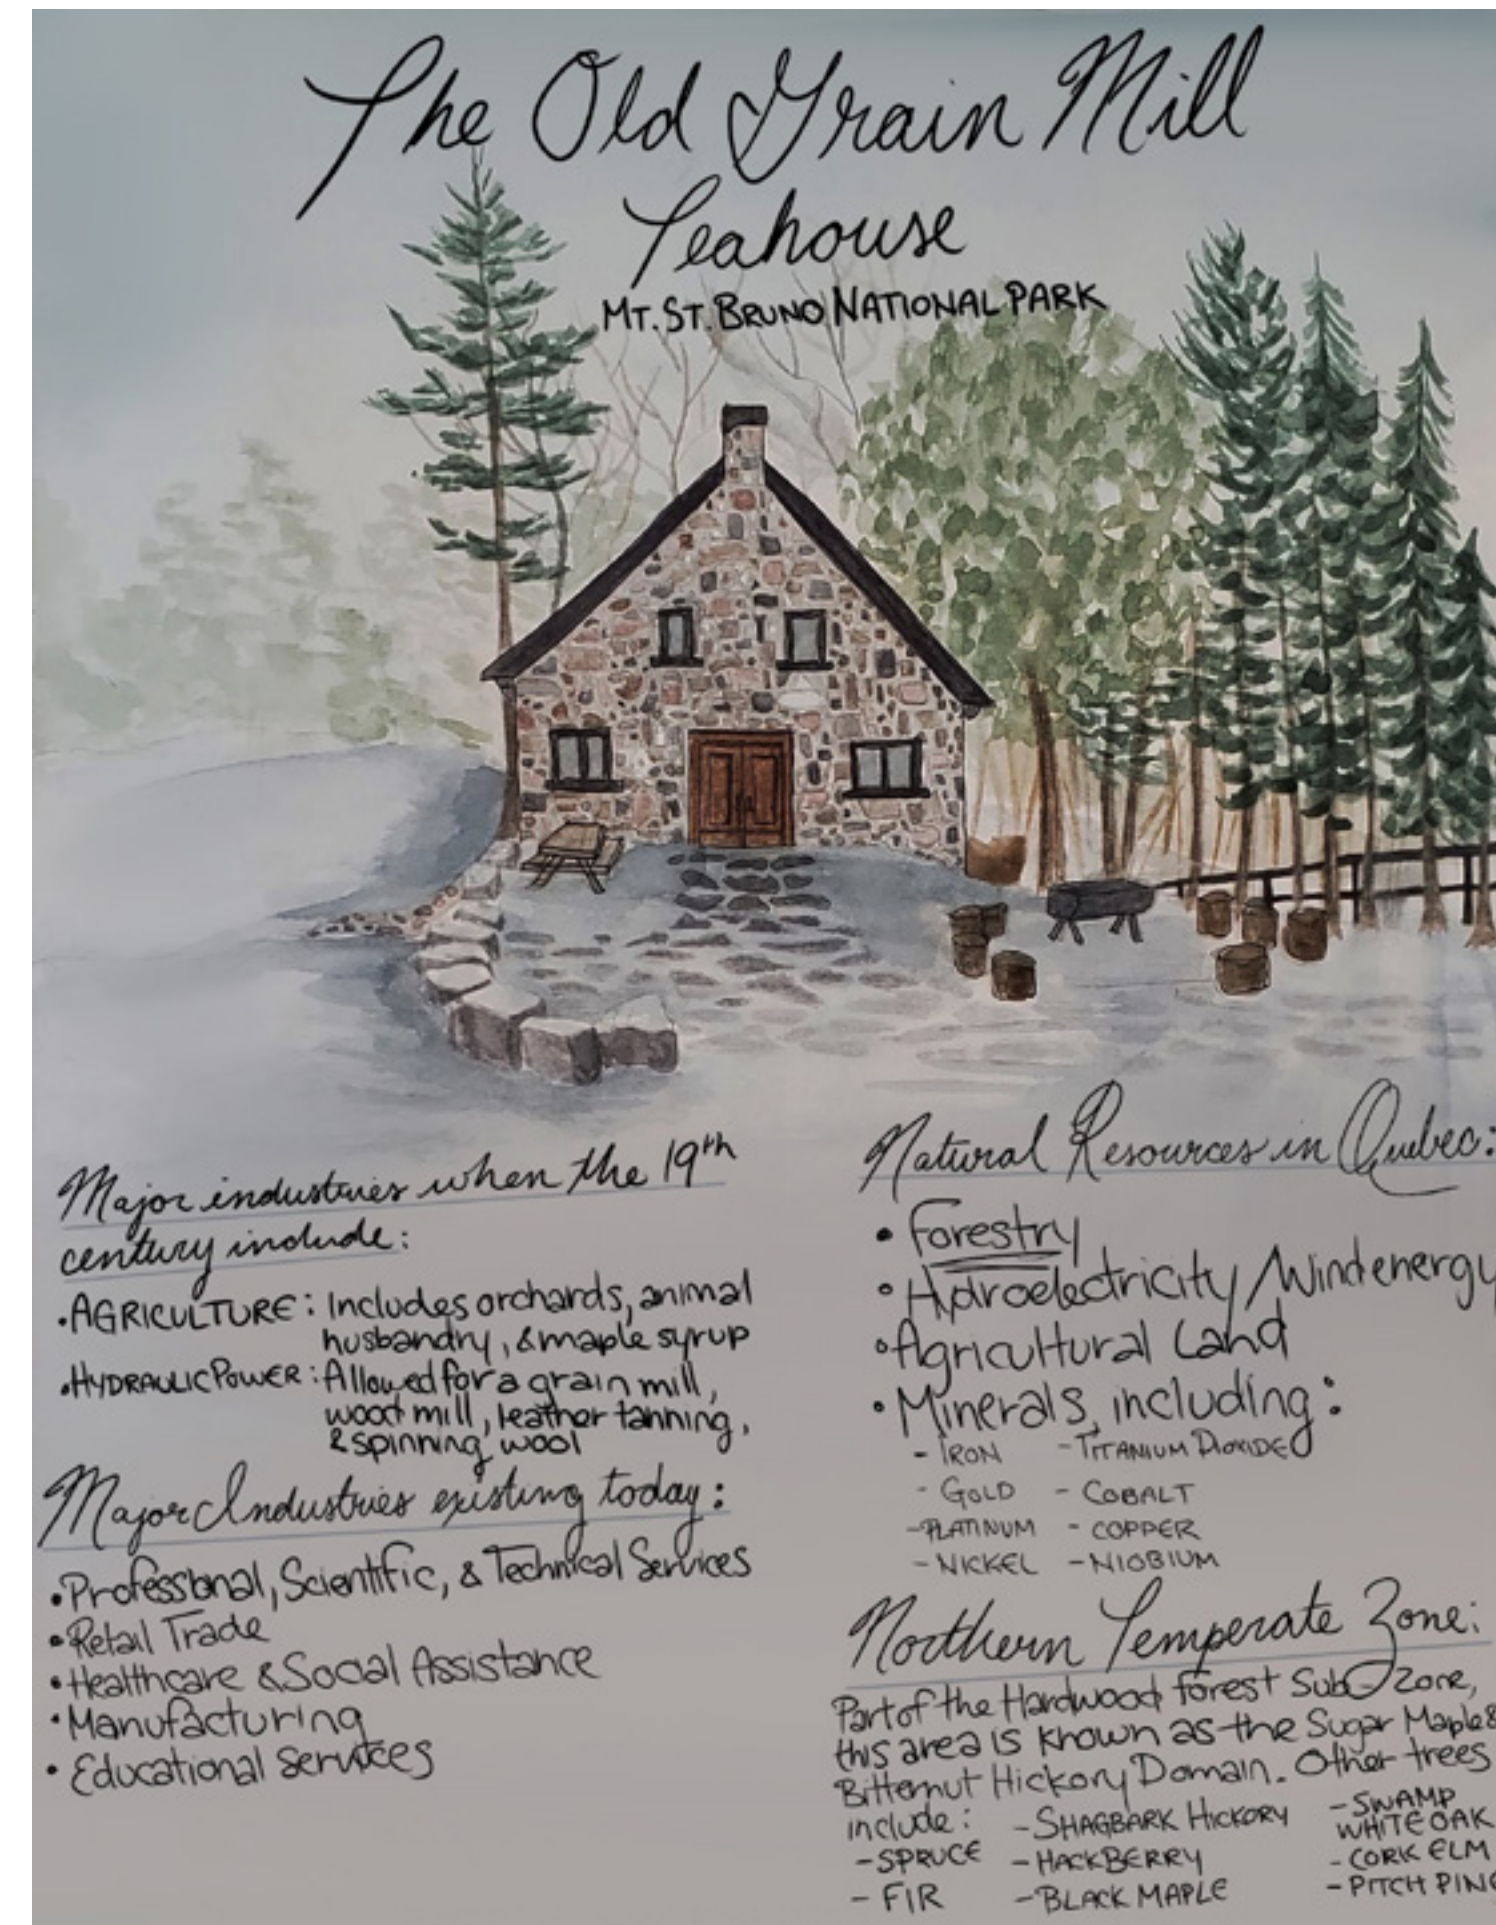 The Old Grain Mill
Teahouse
MT. ST. BRUNO NATIONAL PARK
Major industries when the 19th
century include:
• AGRICULTURE: Includes orchards, animal
husbandry, & maple syrup
• HYDRAULIC POWER: Allowed for a grain mill,
wood mill, leather tanning,
& spinning wool
Major Industries existing today:
• Professional, Scientific, & Technical Services
• Retail Trade
• Healthcare & Social Assistance
• Manufacturing
• Educational Services
Natural Resources in Quebec:
• Forestry
• Hydroelectricity/Wind energy
• Agricultural Land
• Minerals, including:
- IRON - TITANIUM DIOXIDE
- GOLD - COBALT
- PLATINUM - COPPER
- NICKEL - NIOBIUM
Northern Temperate Zone:
Part of the Hardwood forest Sub-Zone,
this area is known as the Sugar Maple &
Bitternut Hickory Domain. Other trees
include: - SHAGBARK HICKORY - SWAMP
WHITE OAK
- SPRUCE - HACKBERRY - CORK ELM
- FIR - BLACK MAPLE - PITCH PINE